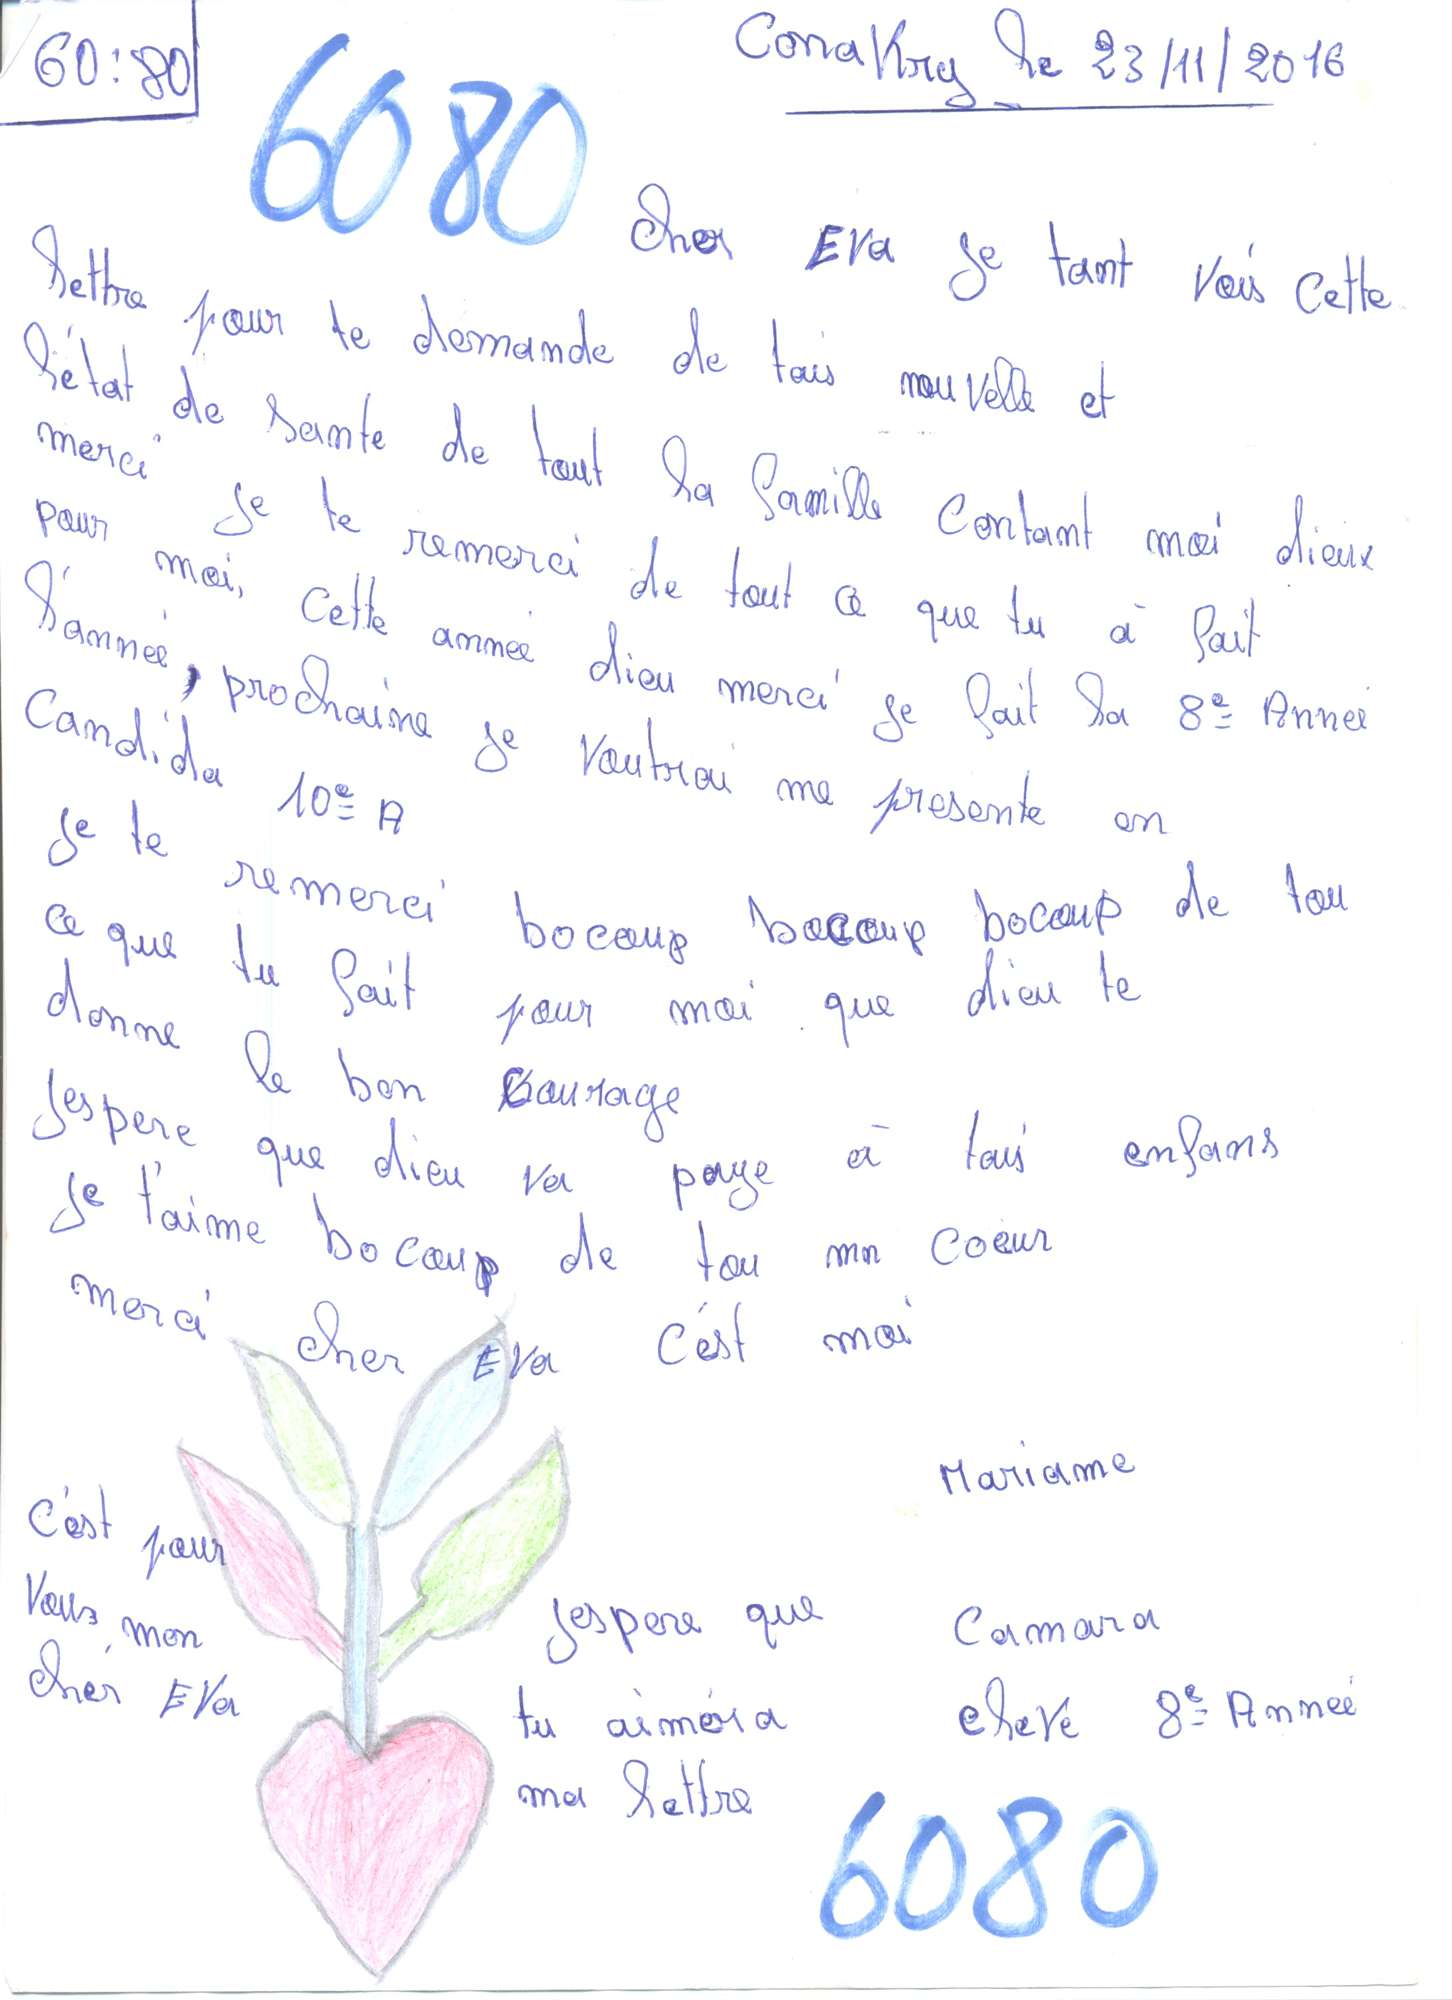 60:80
6080
Conakry le 23/11/2016
Cher EVa je tant vois cette
lettre pour te demande de tais nouvelle et
l'état de sante de tout la famille contant moi dieux
merci je te remerci de tout ce que tu à fait
pour moi, cette anneé dieu merci je fait la 8e Anneé
l'anneé, prochaine je voutrai me presente en
Candida 10e A
je te remerci bocoup bocoup bocoup de tou
ce que tu fait pour moi que dieu te
donne le bon courage
jespere que dieu va paye à tais enfans
je t'aime bocoup de tou mn coeur
merci cher EVa c'est moi
Mariame
c'est pour
vous, mon
cher EVa
jespere que
tu aiméra
ma lettre
Camara
eleve 8e Anneé
6080